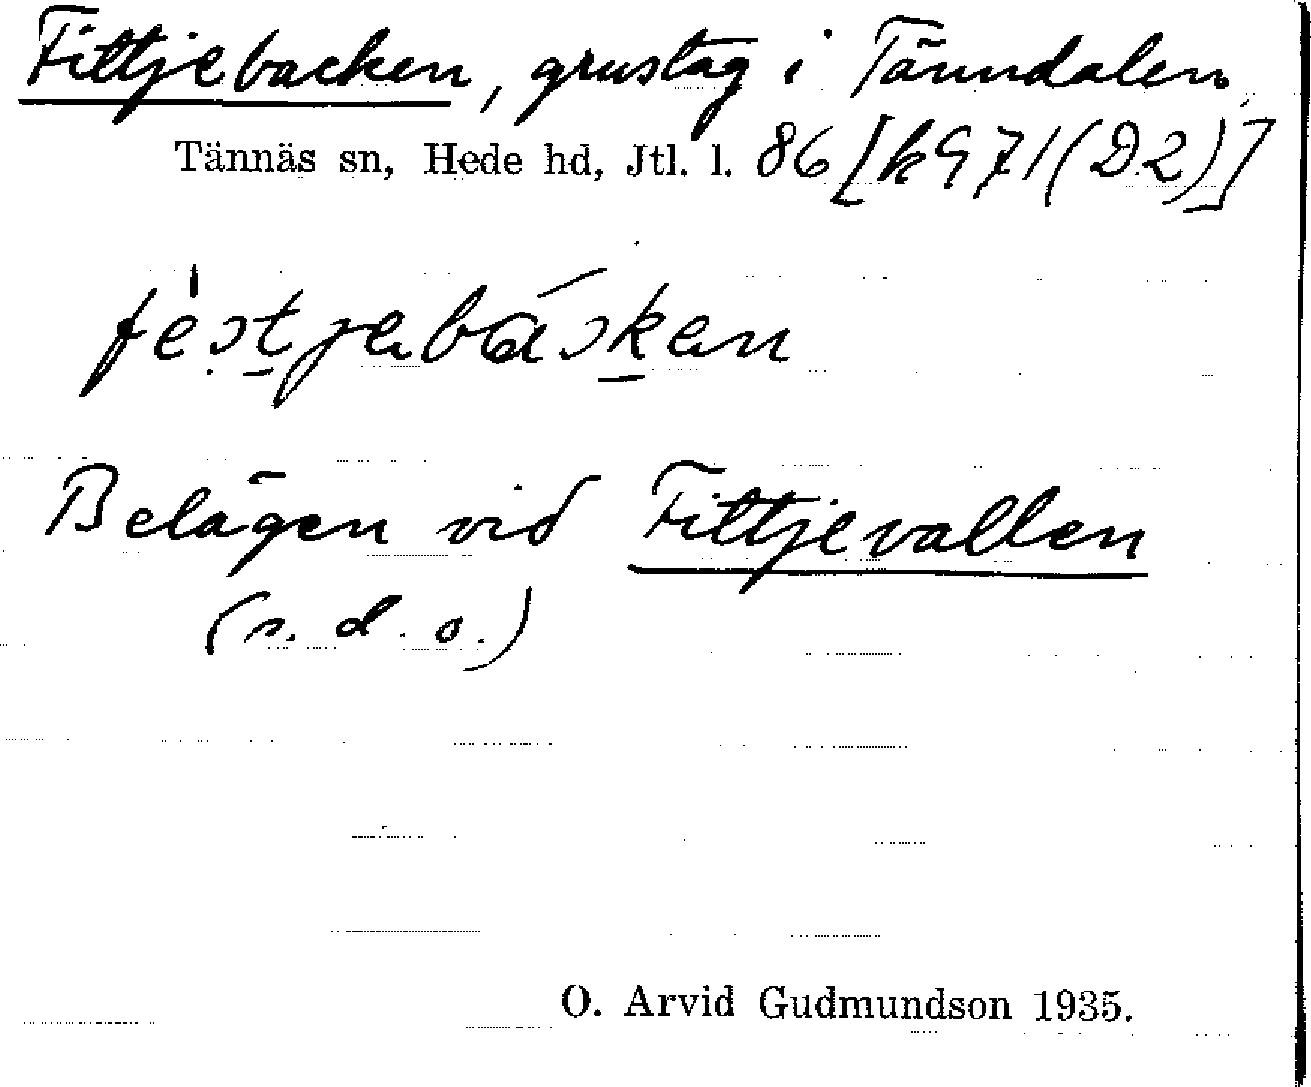 Fittjebacken, grustag i Tänndalen,
Tännäs sn, Hede hd, Jtl. l. 86 [k971(D2)]
Belägen vid Fittjevallen
(s. d. o.)
O. Arvid Gudmundson 1935.